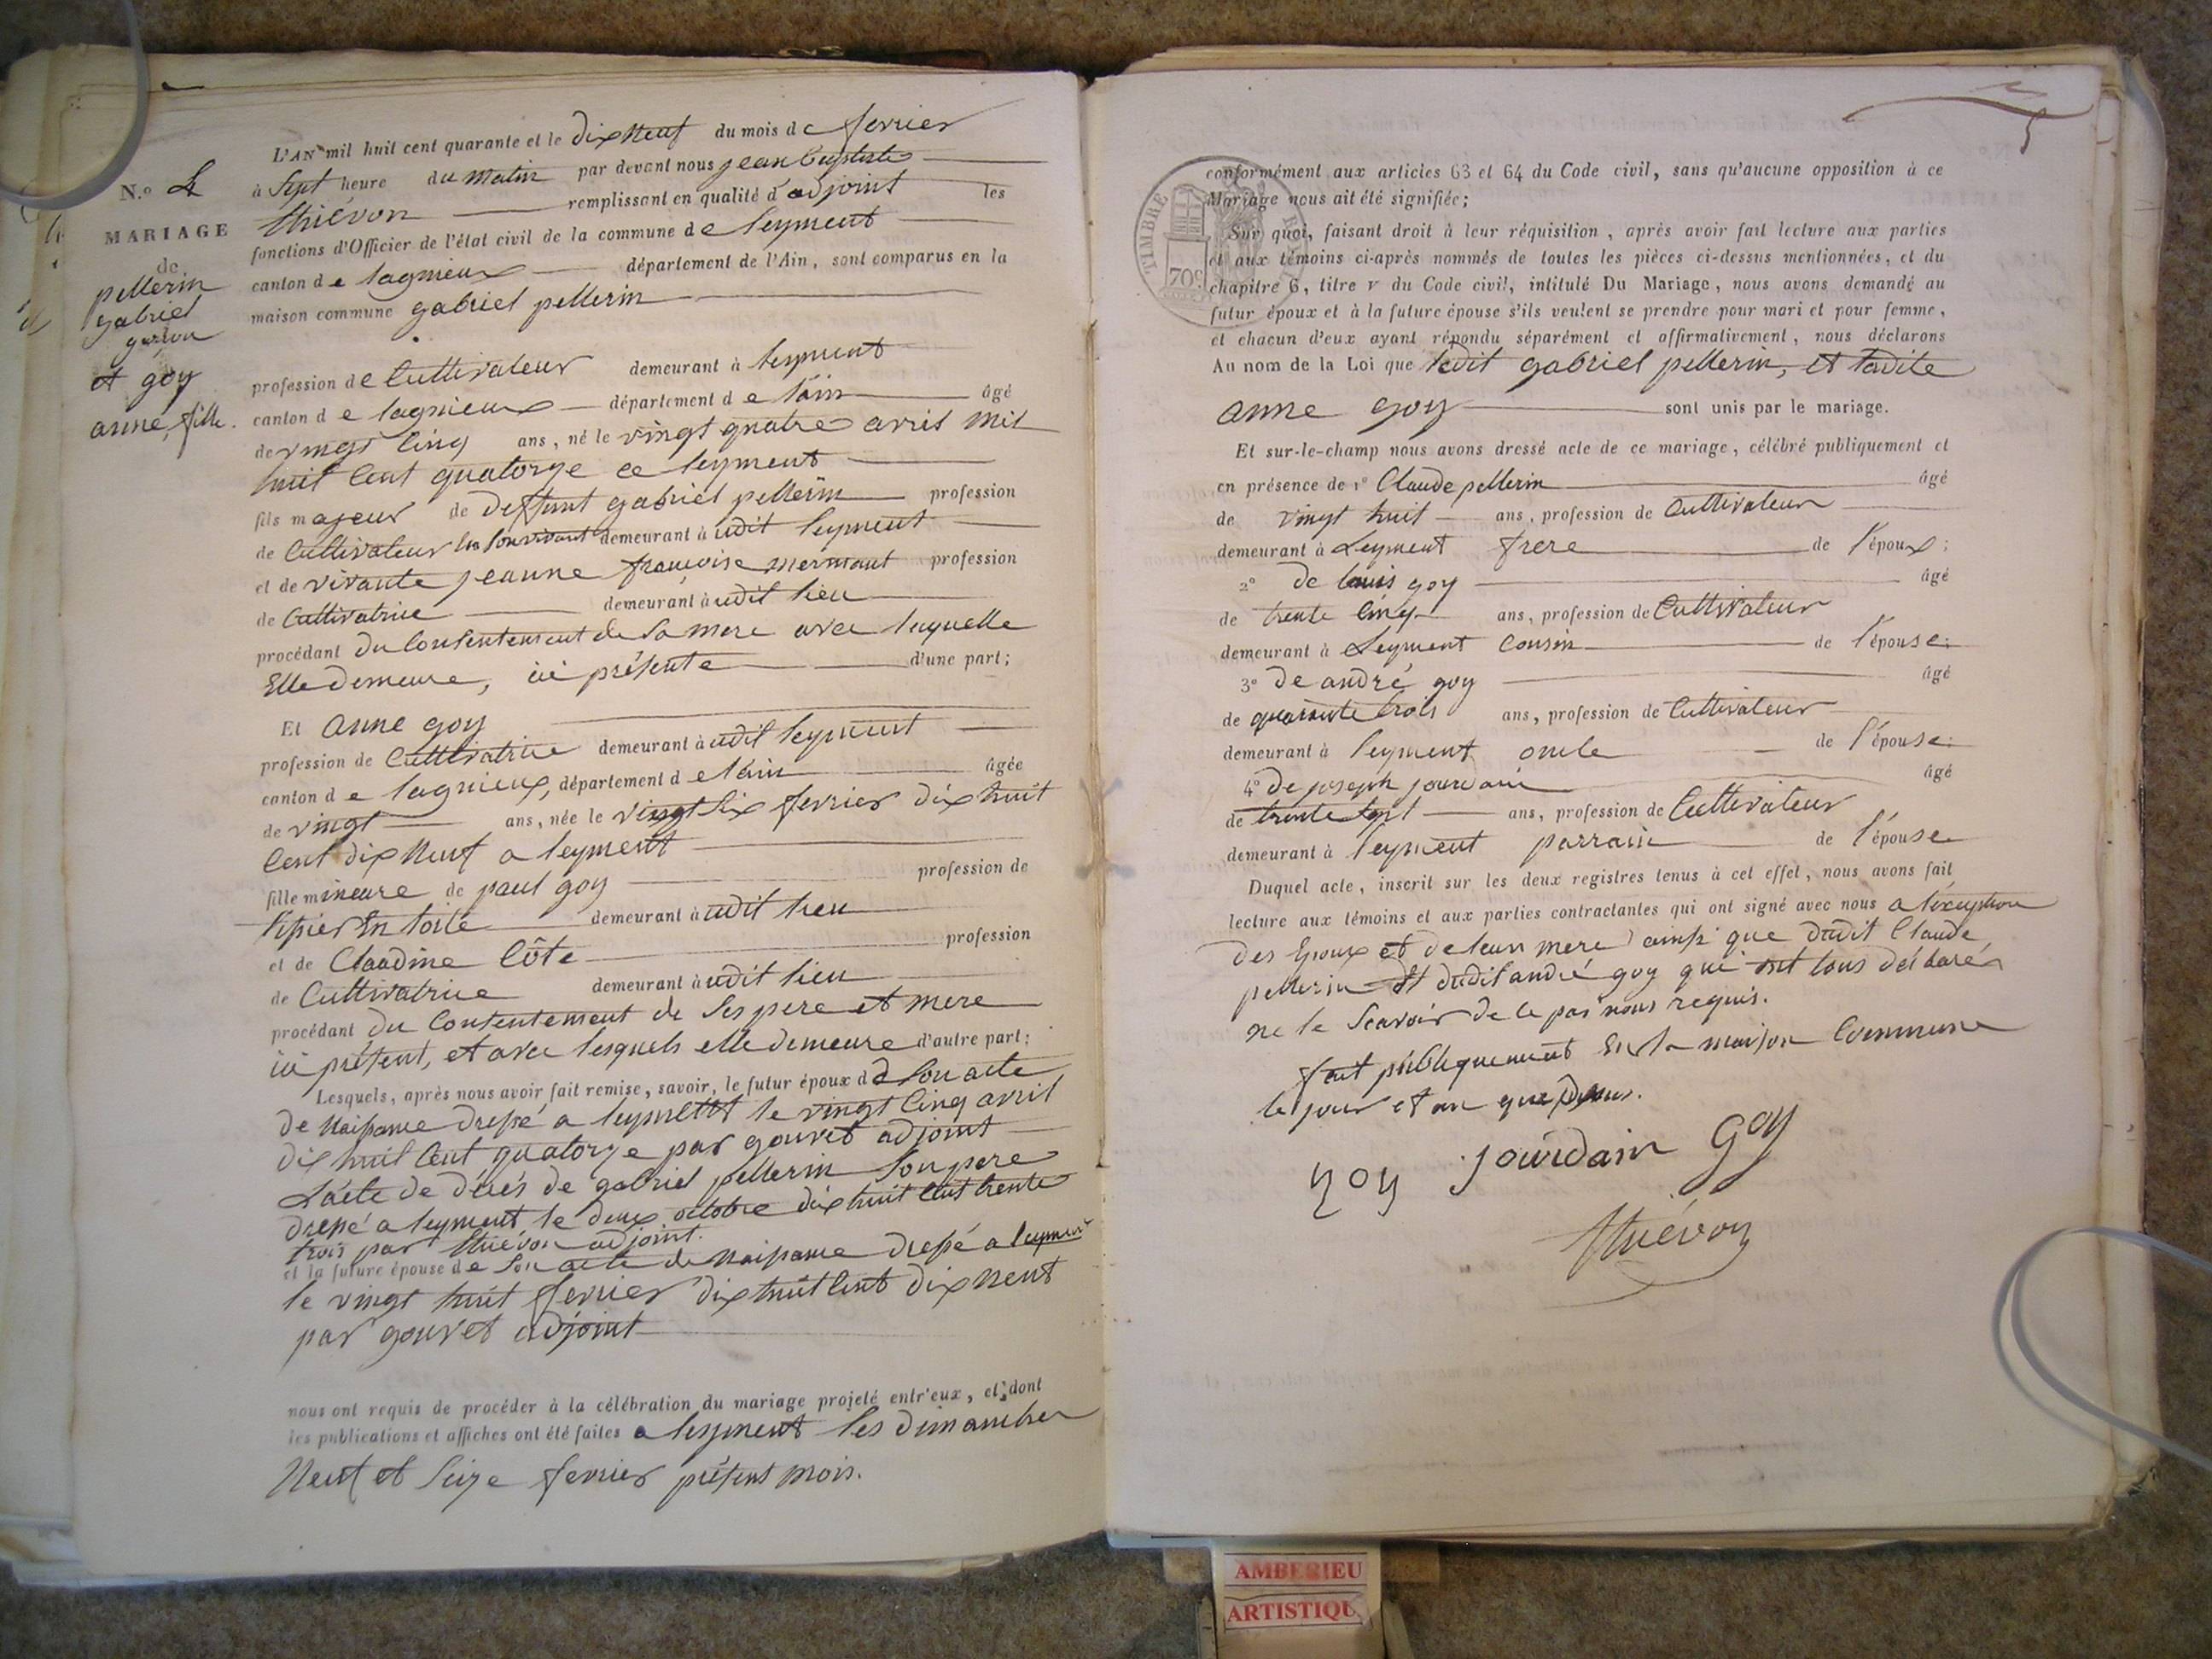 N.o 4
MARIAGE
de
pellerin
gabriel
garson
et goy
anne, fille.
L'AN mil huit cent quarante et le dix neuf du mois de fevrier
à sept heure du matin par devant nous jean baptiste
thiévon remplissant en qualité d'adjoint les
fonctions d'Officier de l'état civil de la commune de leyment
canton de lagnieux département de l'Ain, sont comparus en la
maison commune gabriel pellerin
profession de cultivateur demeurant à leyment
canton de lagnieux département de l'ain âgé
de vingt cinq ans, né le vingt quatre avril mil
huit cent quatorze a leyment
fils majeur de deffunt gabriel pellerin profession
de cultivateur en son vivant demeurant à udit leyment
et de vivante jeanne françoise mermant profession
de cultivatrice demeurant à udit lieu
procédant du consentement de sa mere avec laquelle
Elle demeure, ici présente d'une part;
Et anne goy
profession de cultivatrice demeurant à udit leyment
canton de lagnieux, département de l'ain âgée
de vingt ans, née le vingt six fevrier dix huit
cent dix neuf a leyment
fille mineure de paul goy profession de
tissier en toile demeurant à udit lieu
et de Claudine Côte profession
de cultivatrice demeurant à udit lieu
procédant du consentement de ses pere et mere
ici présent, et avec lesquels elle demeure d'autre part;
Lesquels, après nous avoir fait remise, savoir, le futur époux de son acte
de naissance dressé a leyment le vingt cinq avril
dix huit cent quatorze par gouvet adjoint
L'acte de décés de gabriel pellerin son pere
dressé a leyment le deux octobre dix huit cent trente
trois par thiévon adjoint.
et la future épouse de son acte de naissance dressé a leyment
le vingt huit fevrier dix huit cent dix neuf
par gouvet adjoint
nous ont requis de procéder à la célébration du mariage projeté entr'eux, et dont
les publications et affiches ont été faites a leyment les dimanches
neuf et seize fevrier présent mois.
5
TIMBRE ROYAL
70c
conformément aux articles 63 et 64 du Code civil, sans qu'aucune opposition à ce
Mariage nous ait été signifiée;
Sur quoi, faisant droit à leur réquisition, après avoir fait lecture aux parties
et aux témoins ci-après nommés de toutes les pièces ci-dessus mentionnées, et du
chapitre 6, titre v du Code civil, intitulé Du Mariage, nous avons demandé au
futur époux et à la future épouse s'ils veulent se prendre pour mari et pour femme,
et chacun d'eux ayant répondu séparément et affirmativement, nous déclarons
Au nom de la Loi que ledit gabriel pellerin, et ladite
anne goy sont unis par le mariage.
Et sur-le-champ nous avons dressé acte de ce mariage, célébré publiquement et
en présence de 1o Claude pellerin âgé
de vingt huit ans, profession de cultivateur
demeurant à Leyment frere de l'époux;
2o de louis goy âgé
de trente cinq ans, profession de Cultivateur
demeurant à Leyment cousin de l'épouse;
3o de andré goy âgé
de quarante trois ans, profession de cultivateur
demeurant à leyment oncle de l'épouse;
4o de joseph jourdain âgé
de trente sept ans, profession de Cultivateur
demeurant à leyment parrain de l'épouse
Duquel acte, inscrit sur les deux registres tenus à cet effet, nous avons fait
lecture aux témoins et aux parties contractantes qui ont signé avec nous a l'exception
des Epoux et de leurs mere ainsi que dudit Claude
pellerin Et dudit andré goy qui ont tous déclarés
ne le scavoir de ce par nous requis.
fait publiquement En la maison Commune
le jour et an que dessus.
goy jourdain Goy
thiévon
AMBERIEU
ARTISTIQU